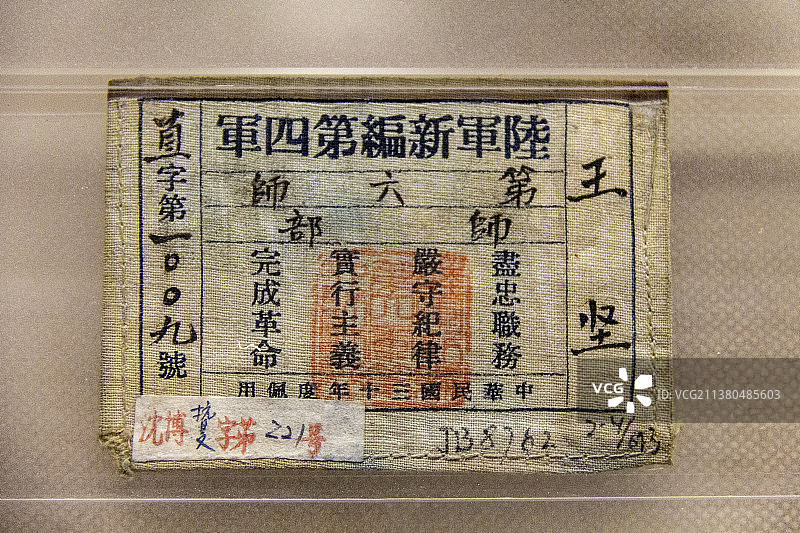 陸軍新編第四軍
第六師
師部
盡忠職務
嚴守紀律
實行主義
完成革命
中華民國三十年度佩用
王坚
直字第一00九號
沈博 字第221号
JB8762
VCG
VCG
ID: VCG211380485603